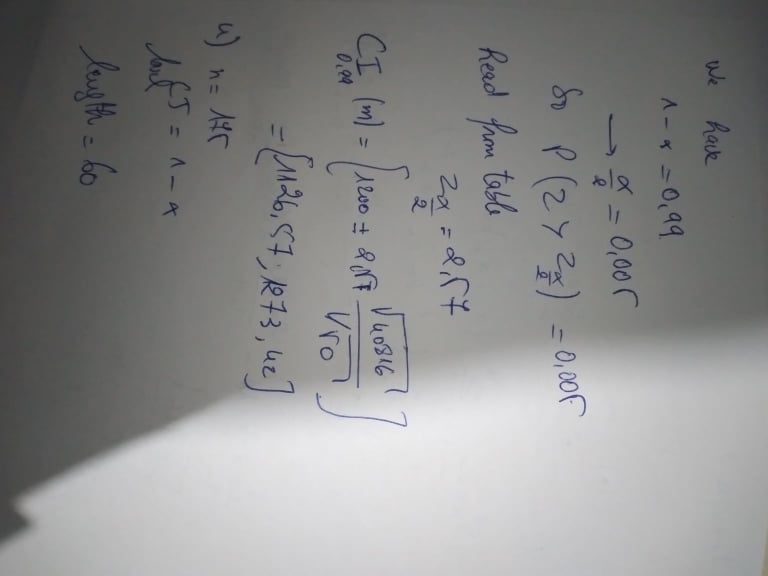 We have
1 - α = 0,99
→ α/2 = 0,005
So P(Z > Zα/2) = 0,005
Read from table
Zα/2 = 2,57
CI0,99 (m) = [1200 ± 2,57 √40816/√50]
= [1126,57; 1273,42]
4) n = 175
level CI = 1 - α
length = 60